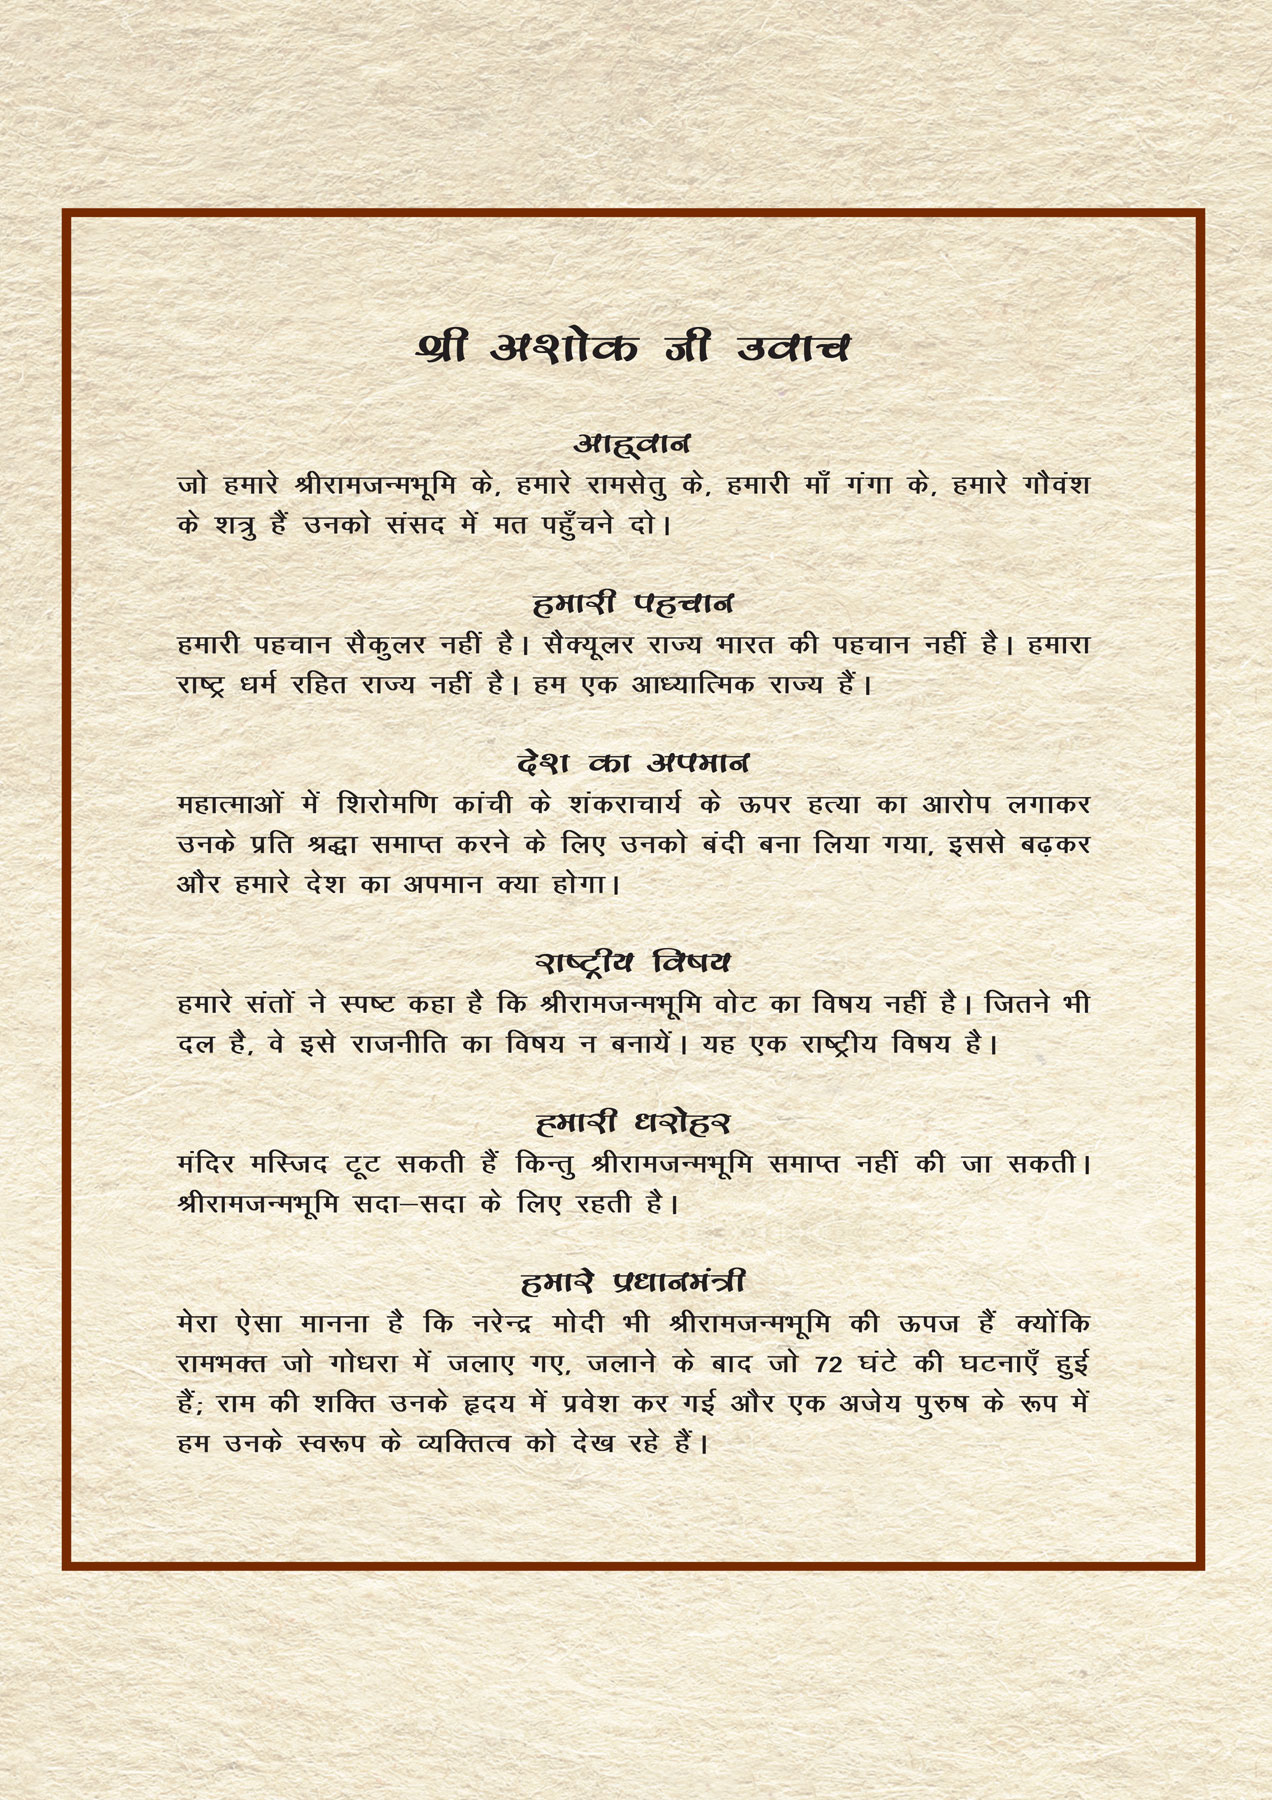 श्री अशोक जी उवाच
आह्वान
जो हमारे श्रीरामजन्मभूमि के, हमारे रामसेतु के, हमारी माँ गंगा के, हमारे गौवंश
के शत्रु हैं उनको संसद में मत पहुँचने दो।
हमारी पहचान
हमारी पहचान सैकुलर नहीं है। सैक्यूलर राज्य भारत की पहचान नहीं है। हमारा
राष्ट्र धर्म रहित राज्य नहीं है। हम एक आध्यात्मिक राज्य हैं।
देश का अपमान
महात्माओं में शिरोमणि कांची के शंकराचार्य के ऊपर हत्या का आरोप लगाकर
उनके प्रति श्रद्धा समाप्त करने के लिए उनको बंदी बना लिया गया, इससे बढ़कर
और हमारे देश का अपमान क्या होगा।
राष्ट्रीय विषय
हमारे संतों ने स्पष्ट कहा है कि श्रीरामजन्मभूमि वोट का विषय नहीं है। जितने भी
दल है, वे इसे राजनीति का विषय न बनायें। यह एक राष्ट्रीय विषय है।
हमारी धरोहर
मंदिर मस्जिद टूट सकती हैं किन्तु श्रीरामजन्मभूमि समाप्त नहीं की जा सकती।
श्रीरामजन्मभूमि सदा–सदा के लिए रहती है।
हमारे प्रधानमंत्री
मेरा ऐसा मानना है कि नरेन्द्र मोदी भी श्रीरामजन्मभूमि की ऊपज हैं क्योंकि
रामभक्त जो गोधरा में जलाए गए, जलाने के बाद जो 72 घंटे की घटनाएँ हुई
हैं; राम की शक्ति उनके हृदय में प्रवेश कर गई और एक अजेय पुरुष के रूप में
हम उनके स्वरूप के व्यक्तित्व को देख रहे हैं।